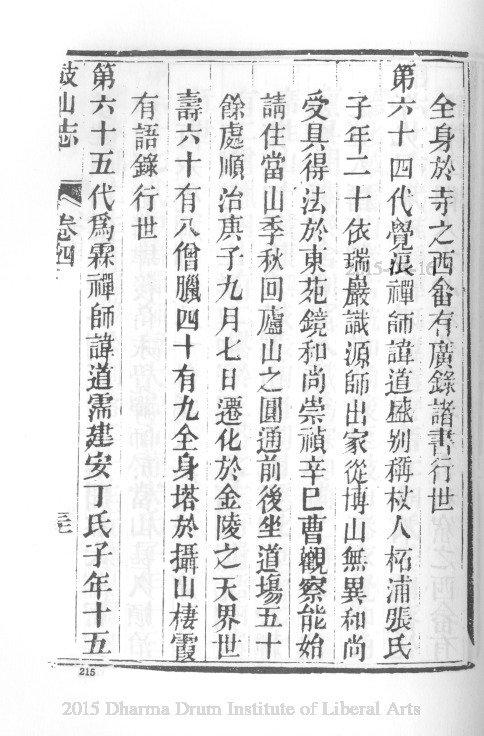 全身於寺之西畬有廣錄諸書行世
第六十四代覺浪禪師諱道盛别稱杖人柘浦張氏
子年二十依瑞巖識源師出家從博山無異和尚
受具得法於東苑鏡和尚崇禎辛巳曹觀察能始
請住當山季秋回廬山之圓通前後坐道塲五十
餘處順治庚子九月七日遷化於金陵之天界世
壽六十有八僧臘四十有九全身塔於攝山棲霞
有語錄行世
第六十五代爲霖禪師諱道霈建安丁氏子年十五
鼓山志
卷四
215
2015 Dharma Drum Institute of Liberal Arts